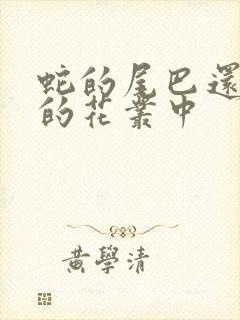 蛇的尾巴還
的花叢中
黃學清